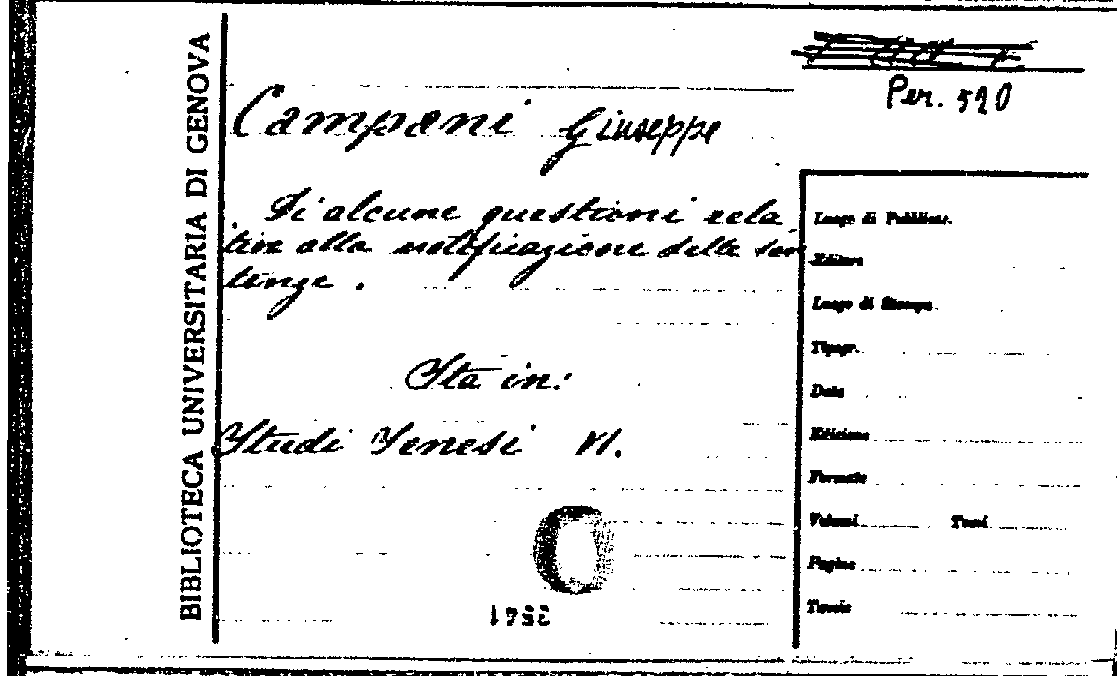 BIBLIOTECA UNIVERSITARIA DI GENOVA
Per. 590
Campani Giuseppe
Di alcune questioni rela
tive alla notificazione delle sen
tenze.
Sta in:
Studi Senesi VI.
Luogo di Pubblicaz.
Editore
Luogo di Stampa
Tipogr.
Data
Edizione
Formato
Volumi Tomi
Pagine
Tavole